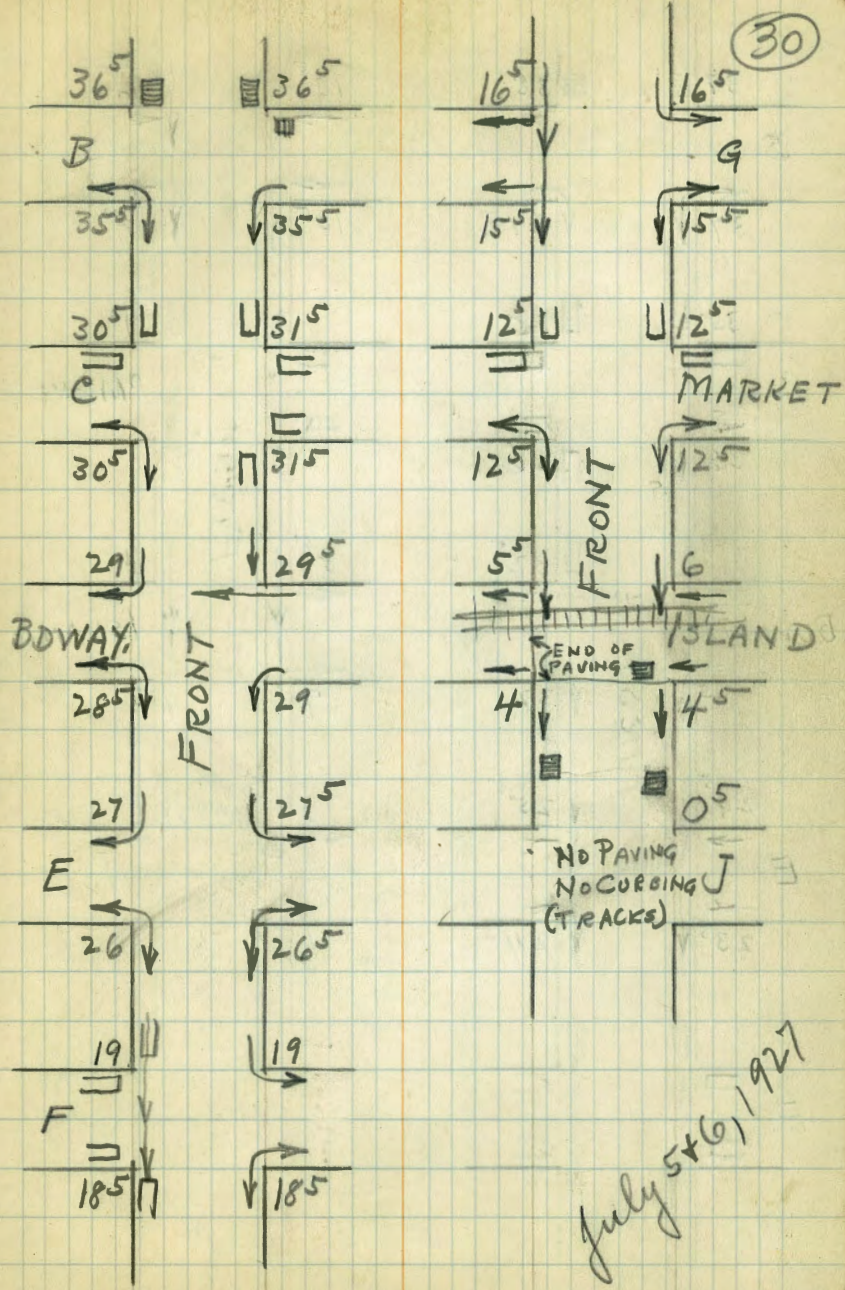 30
36⁵ 36⁵
B
35⁵ 35⁵
30⁵ 31⁵
C
30⁵ 31⁵
29 29⁵
BDWAY.
FRONT
28⁵ 29
27 27⁵
E
26 26⁵
19 19
F
18⁵ 18⁵
16⁵ 16⁵
G
15⁵ 15⁵
12⁵ 12⁵
MARKET
12⁵ 12⁵
FRONT
5⁵ 6
ISLAND
END OF
PAVING
4 4⁵
0⁵
NO PAVING
NO CURBING J
(TRACKS)
July 5+6, 1927